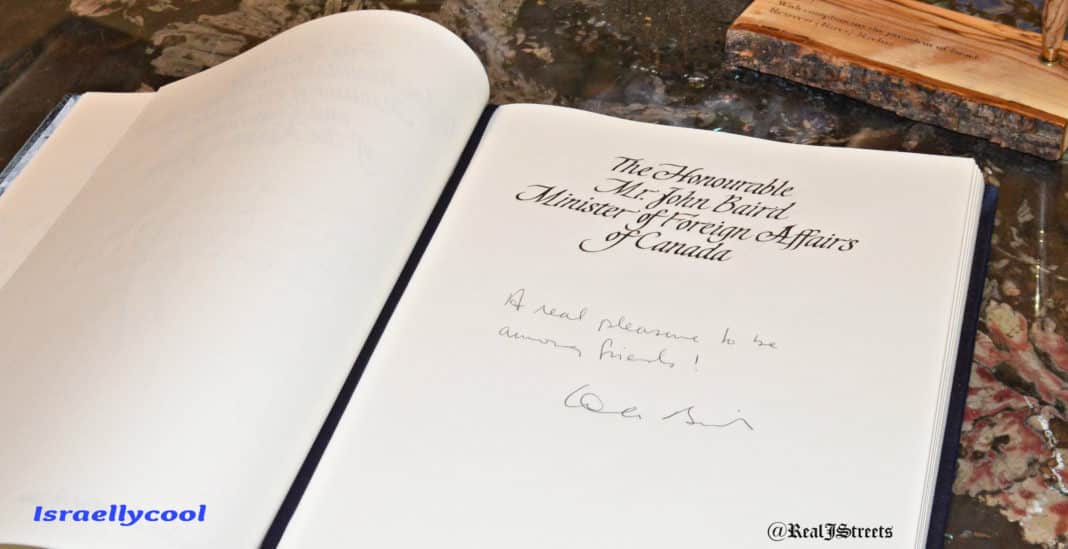 With compliments the president of Israel
The Honourable
Mr. John Baird
Minister of Foreign Affairs
of Canada
A real pleasure to be
among friends!
Israellycool
@RealJStreets